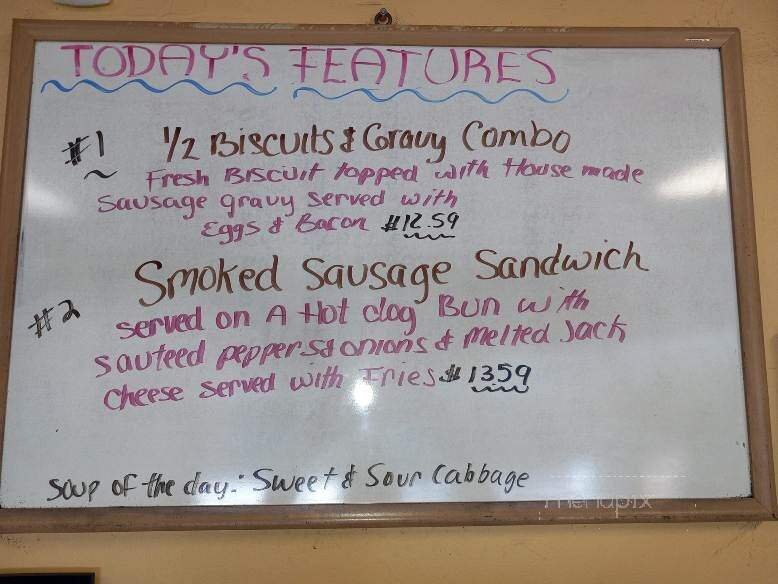 TODAY'S FEATURES
#1 1/2 Biscuits & Gravy Combo
Fresh Biscuit topped with House made
Sausage gravy served with
Eggs & Bacon $12.59
#2 Smoked Sausage Sandwich
served on A Hot dog Bun with
sauteed peppers & onions & Melted Jack
cheese served with Fries $13.59
Soup of the day: Sweet & Sour Cabbage
menupix